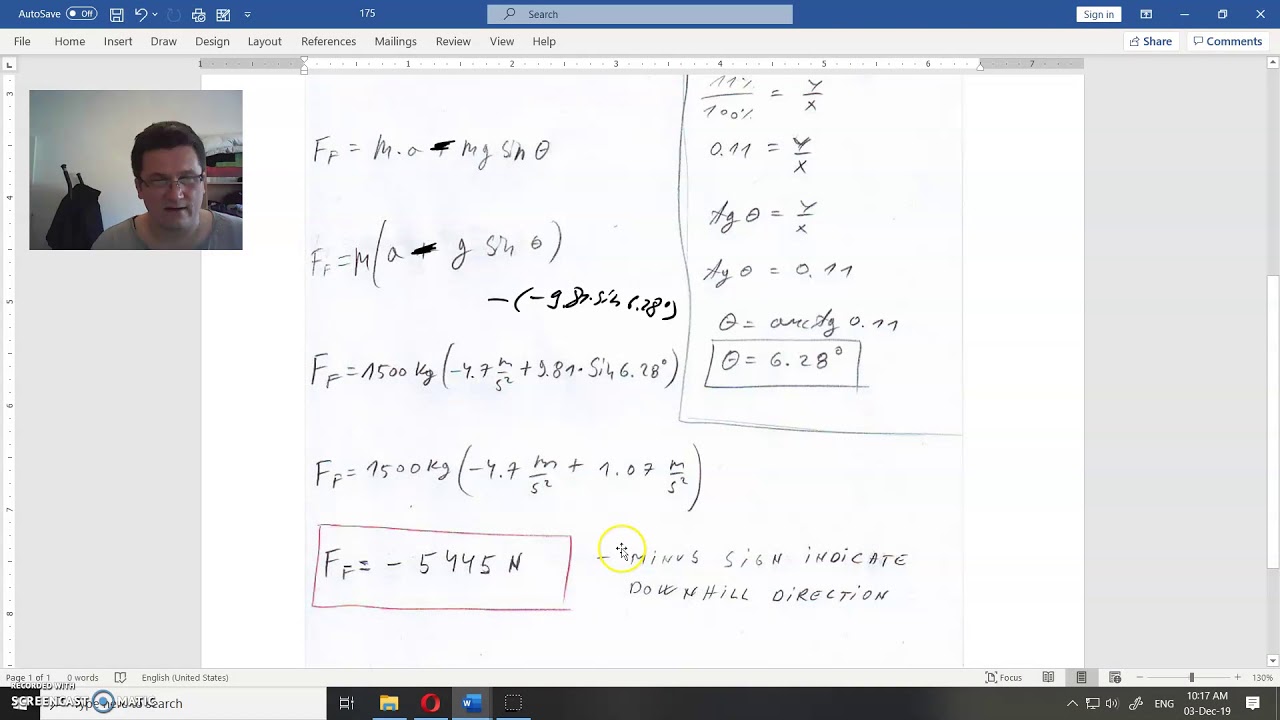 AutoSave Off 175 Search Sign in
File Home Insert Draw Design Layout References Mailings Review View Help Share Comments
1 1 2 3 4 5 6 7
3
4
5
6
7
8
11% / 100% = Y / X
0.11 = Y / X
tg θ = Y / X
tg θ = 0.11
θ = arctg 0.11
θ = 6.28°
F_F = m.a - mg sin θ
F_F = m(a - g sin θ)
- (-9.81.sin 6.28°)
F_F = 1500 kg (-4.7 m/s² + 9.81 · Sin 6.28°)
F_F = 1500 kg (-4.7 m/s² + 1.07 m/s²)
F_F = - 5445 N
- MINUS SIGN INDICATE
DOWNHILL DIRECTION
Page 1 of 1 0 words English (United States) Focus 130%
RECORDED WITH
SCREENCAST MATIC
Type here to search
10:17 AM
03-Dec-19